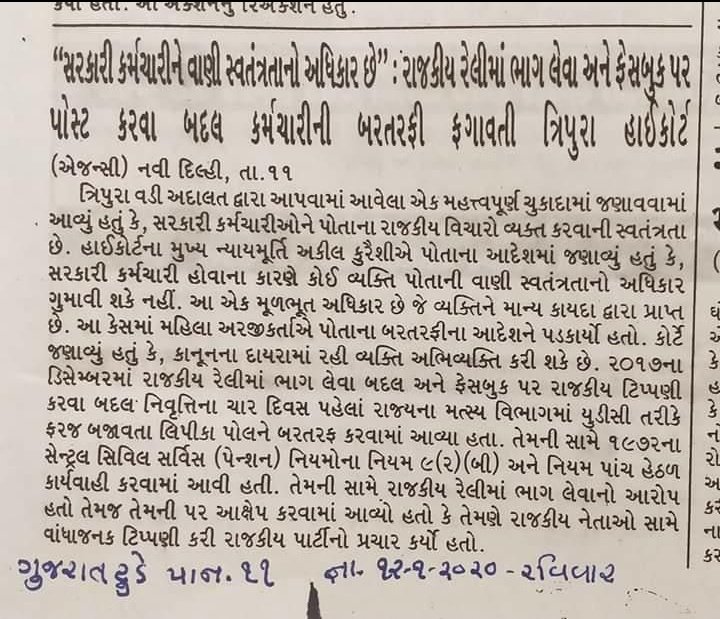 “સરકારી કર્મચારીને વાણી સ્વતંત્રતાનો અધિકાર છે” : રાજકીય રેલીમાં ભાગ લેવા અને ફેસબુક પર
પોસ્ટ કરવા બદલ કર્મચારીની બરતરફી ફગાવતી ત્રિપુરા હાઈકોર્ટ
(એજન્સી) નવી દિલ્હી, તા.૧૧
ત્રિપુરા વડી અદાલત દ્વારા આપવામાં આવેલા એક મહત્ત્વપૂર્ણ ચુકાદામાં જણાવવામાં
આવ્યું હતું કે, સરકારી કર્મચારીઓને પોતાના રાજકીય વિચારો વ્યક્ત કરવાની સ્વતંત્રતા
છે. હાઈકોર્ટના મુખ્ય ન્યાયમૂર્તિ અકીલ કુરૈશીએ પોતાના આદેશમાં જણાવ્યું હતું કે,
સરકારી કર્મચારી હોવાના કારણે કોઈ વ્યક્તિ પોતાની વાણી સ્વતંત્રતાનો અધિકાર
ગુમાવી શકે નહીં. આ એક મૂળભૂત અધિકાર છે જે વ્યક્તિને માન્ય કાયદા દ્વારા પ્રાપ્ત
છે. આ કેસમાં મહિલા અરજીકર્તાએ પોતાના બરતરફીના આદેશને પડકાર્યો હતો. કોર્ટે
જણાવ્યું હતું કે, કાનૂનના દાયરામાં રહી વ્યક્તિ અભિવ્યક્તિ કરી શકે છે. ૨૦૧૭ના
ડિસેમ્બરમાં રાજકીય રેલીમાં ભાગ લેવા બદલ અને ફેસબુક પર રાજકીય ટિપ્પણી
કરવા બદલ નિવૃત્તિના ચાર દિવસ પહેલાં રાજ્યના મત્સ્ય વિભાગમાં યુડીસી તરીકે
ફરજ બજાવતા લિપીકા પોલને બરતરફ કરવામાં આવ્યા હતા. તેમની સામે ૧૯૭૨ના
સેન્ટ્રલ સિવિલ સર્વિસ (પેન્શન) નિયમોના નિયમ ૯(૨)(બી) અને નિયમ પાંચ હેઠળ
કાર્યવાહી કરવામાં આવી હતી. તેમની સામે રાજકીય રેલીમાં ભાગ લેવાનો આરોપ
હતો તેમજ તેમની પર આક્ષેપ કરવામાં આવ્યો હતો કે તેમણે રાજકીય નેતાઓ સામે
વાંધાજનક ટિપ્પણી કરી રાજકીય પાર્ટીનો પ્રચાર કર્યો હતો.
ગુજરાત ટુડે પાન.૧૧ તા. ૧૨-૧-૨૦૨૦ - રવિવાર